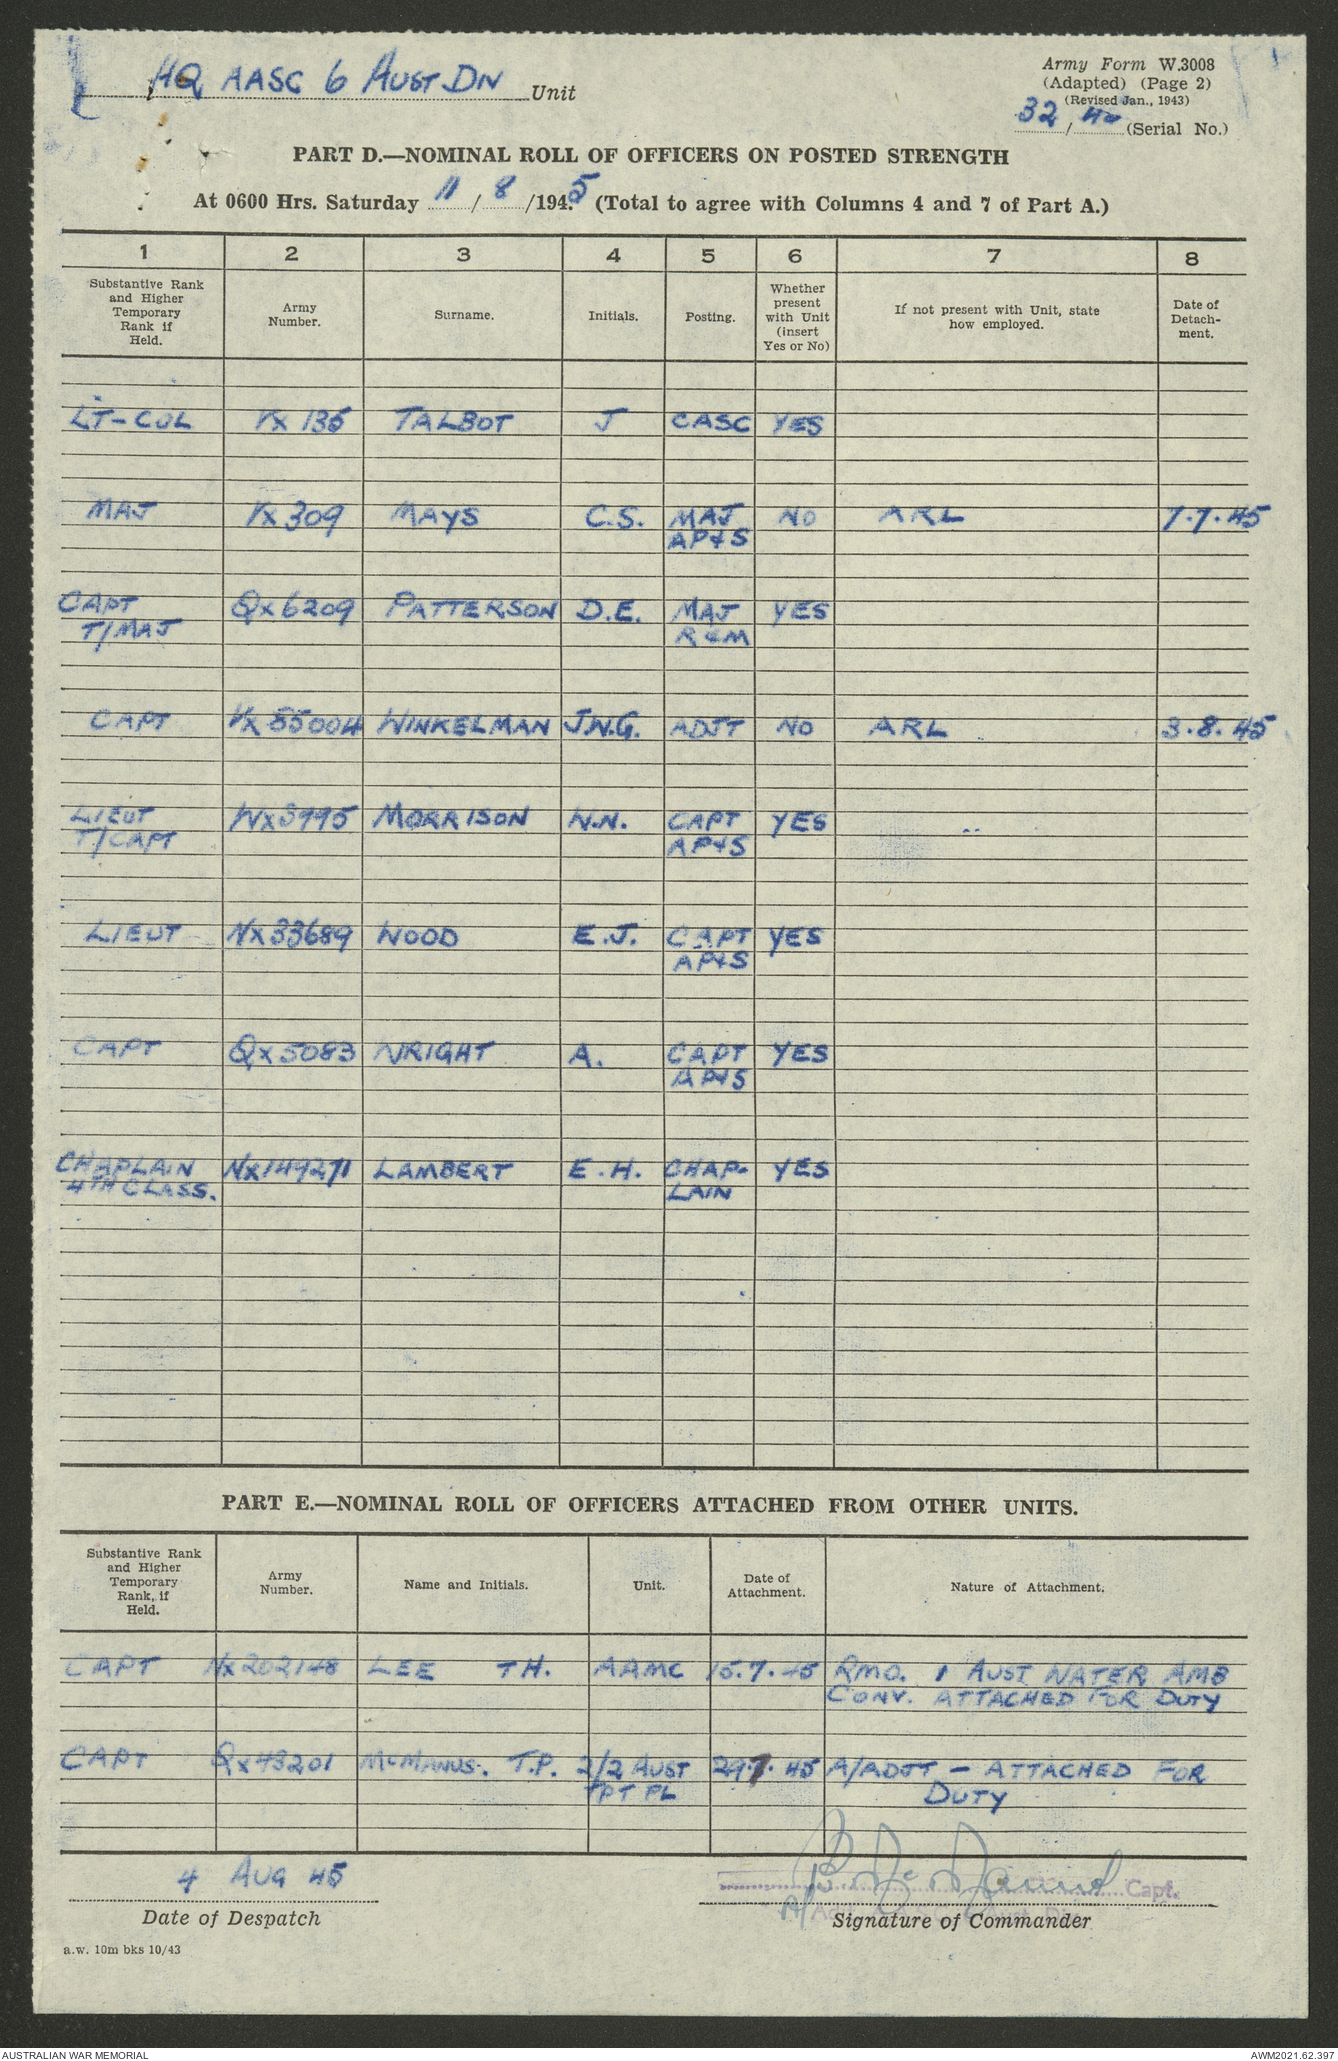 HQ AASC 6 AUST DN Unit
Army Form W.3008
(Adapted) (Page 2)
(Revised Jan., 1943)
32/40 (Serial No.)
PART D.—NOMINAL ROLL OF OFFICERS ON POSTED STRENGTH
At 0600 Hrs. Saturday 11/8/1945 (Total to agree with Columns 4 and 7 of Part A.)
1 2 3 4 5 6 7 8
Substantive Rank and Higher Temporary Rank if Held. Army Number. Surname. Initials. Posting. Whether present with Unit (insert Yes or No) If not present with Unit, state how employed. Date of Detach-ment.
LT-COL VX 135 TALBOT J CASC YES
MAJ VX 309 MAYS C.S. MAJ NO ARL 7.7.45
AP&S
CAPT QX6209 PATTERSON D.E. MAJ YES
T/MAJ R&M
CAPT VX 55004 WINKELMAN J.W.G. ADJT NO ARL 3.8.45
LIEUT MORRISON W.N. CAPT YES
T/CAPT AP&S
LIEUT NX33689 WOOD E.J. CAPT YES
AP&S
CAPT QX5083 WRIGHT A. CAPT YES
AP&S
CHAPLAIN NX149271 LAMBERT E.H. CHAP- YES
4TH CLASS. LAIN
PART E.—NOMINAL ROLL OF OFFICERS ATTACHED FROM OTHER UNITS.
Substantive Rank and Higher Temporary Rank, if Held. Army Number. Name and Initials. Unit. Date of Attachment. Nature of Attachment.
CAPT NX202148 LEE T.H. AAMC 15.7.45 RMO. 1 AUST WATER AMB
CONV. ATTACHED FOR DUTY
CAPT QX48201 McMANUS. T.P. 2/2 AUST 29.7.45 A/ADJT - ATTACHED FOR
TPT PL DUTY
4 AUG 45
Capt.
Date of Despatch
Signature of Commander
a.w. 10m bks 10/43
AUSTRALIAN WAR MEMORIAL
AWM2021.62.397